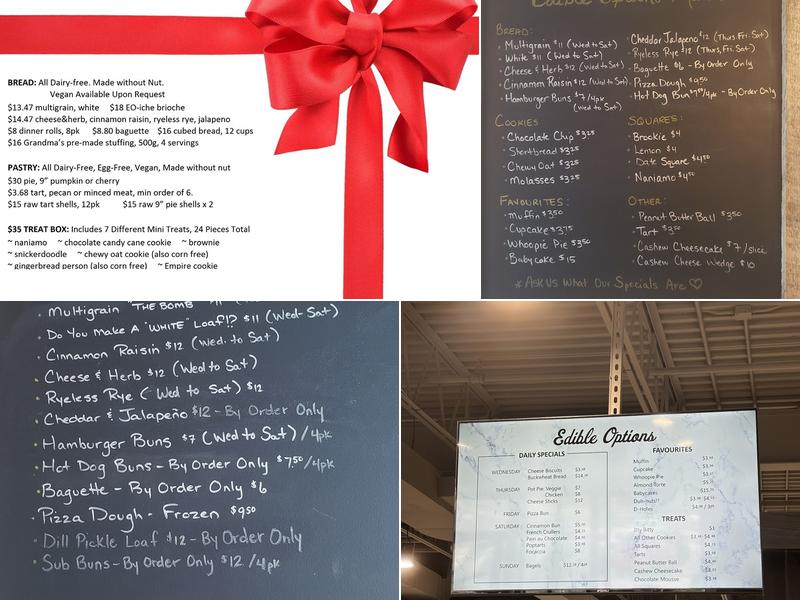 BREAD: All Dairy-free. Made without Nut.
Vegan Available Upon Request
$13.47 multigrain, white $18 EO-iche brioche
$14.47 cheese&herb, cinnamon raisin, ryeless rye, jalapeno
$8 dinner rolls, 8pk $8.80 baguette $16 cubed bread, 12 cups
$16 Grandma's pre-made stuffing, 500g, 4 servings
PASTRY: All Dairy-Free, Egg-Free, Vegan, Made without nut
$30 pie, 9" pumpkin or cherry
$3.68 tart, pecan or minced meat, min order of 6.
$15 raw tart shells, 12pk $15 raw 9" pie shells x 2
$35 TREAT BOX: Includes 7 Different Mini Treats, 24 Pieces Total
~ naniamo ~ chocolate candy cane cookie ~ brownie
~ snickerdoodle ~ chewy oat cookie (also corn free)
~ gingerbread person (also corn free) ~ Empire cookie
BREAD:
• Multigrain $11 (Wed to Sat)
• White $11 (Wed to Sat)
• Cheese & Herb $12 (Wed to Sat)
• Cinnamon Raisin $12 (Wed to Sat)
• Hamburger Buns $7/4pk
(Wed to Sat)
• Cheddar Jalapeno $12 (Thurs, Fri, Sat)
• Ryeless Rye $12 (Thurs, Fri, Sat)
• Baguette $6 - By Order Only
• Pizza Dough $9.50
• Hot Dog Bun $7.50/4pk - By Order Only
COOKIES
• Chocolate Chip $3.25
• Shortbread $3.25
• Chewy Oat $3.25
• Molasses $3.25
SQUARES:
• Brookie $4
• Lemon $4
• Date Square $4.50
• Naniamo $4.50
FAVOURITES:
• Muffin $3.50
• Cupcake $3.75
• Whoopie Pie $3.50
• Babycake $15
OTHER:
• Peanut Butter Ball $3.50
• Tart $3.50
• Cashew Cheesecake $7/slice
• Cashew Cheese Wedge $10
* Ask Us What Our Specials Are ♡
• Multigrain "THE BOMB" $11
• Do You Make A "WHITE" Loaf!? $11 (Wed-Sat)
• Cinnamon Raisin $12 (Wed. to Sat)
• Cheese & Herb $12 (Wed to Sat)
• Ryeless Rye (Wed to Sat) $12
• Cheddar & Jalapeño $12 - By Order Only
• Hamburger Buns $7 (Wed to Sat) /4pk
• Hot Dog Buns - By Order Only $7.50/4pk
• Baguette - By Order Only $6
• Pizza Dough - Frozen $9.50
• Dill Pickle Loaf $12 - By Order Only
• Sub Buns - By Order Only $12 /4pk
Edible Options
DAILY SPECIALS
WEDNESDAY Cheese Biscuits
Buckwheat Bread
THURSDAY Pot Pie: Veggie $7
Chicken $8
Cheese Sticks $12
FRIDAY Pizza Bun $6
SATURDAY Cinnamon Bun
French Crullers
Pain au Chocolate
Poptarts
Focaccia $8
SUNDAY Bagels
FAVOURITES
Muffin
Cupcake
Whoopie Pie
Almond Torte
Babycakes
Duh-nuts!!
D-Holes
TREATS
Itty Bitty $1
All Other Cookies
All Squares
Tarts
Peanut Butter Ball
Cashew Cheesecake
Chocolate Mousse